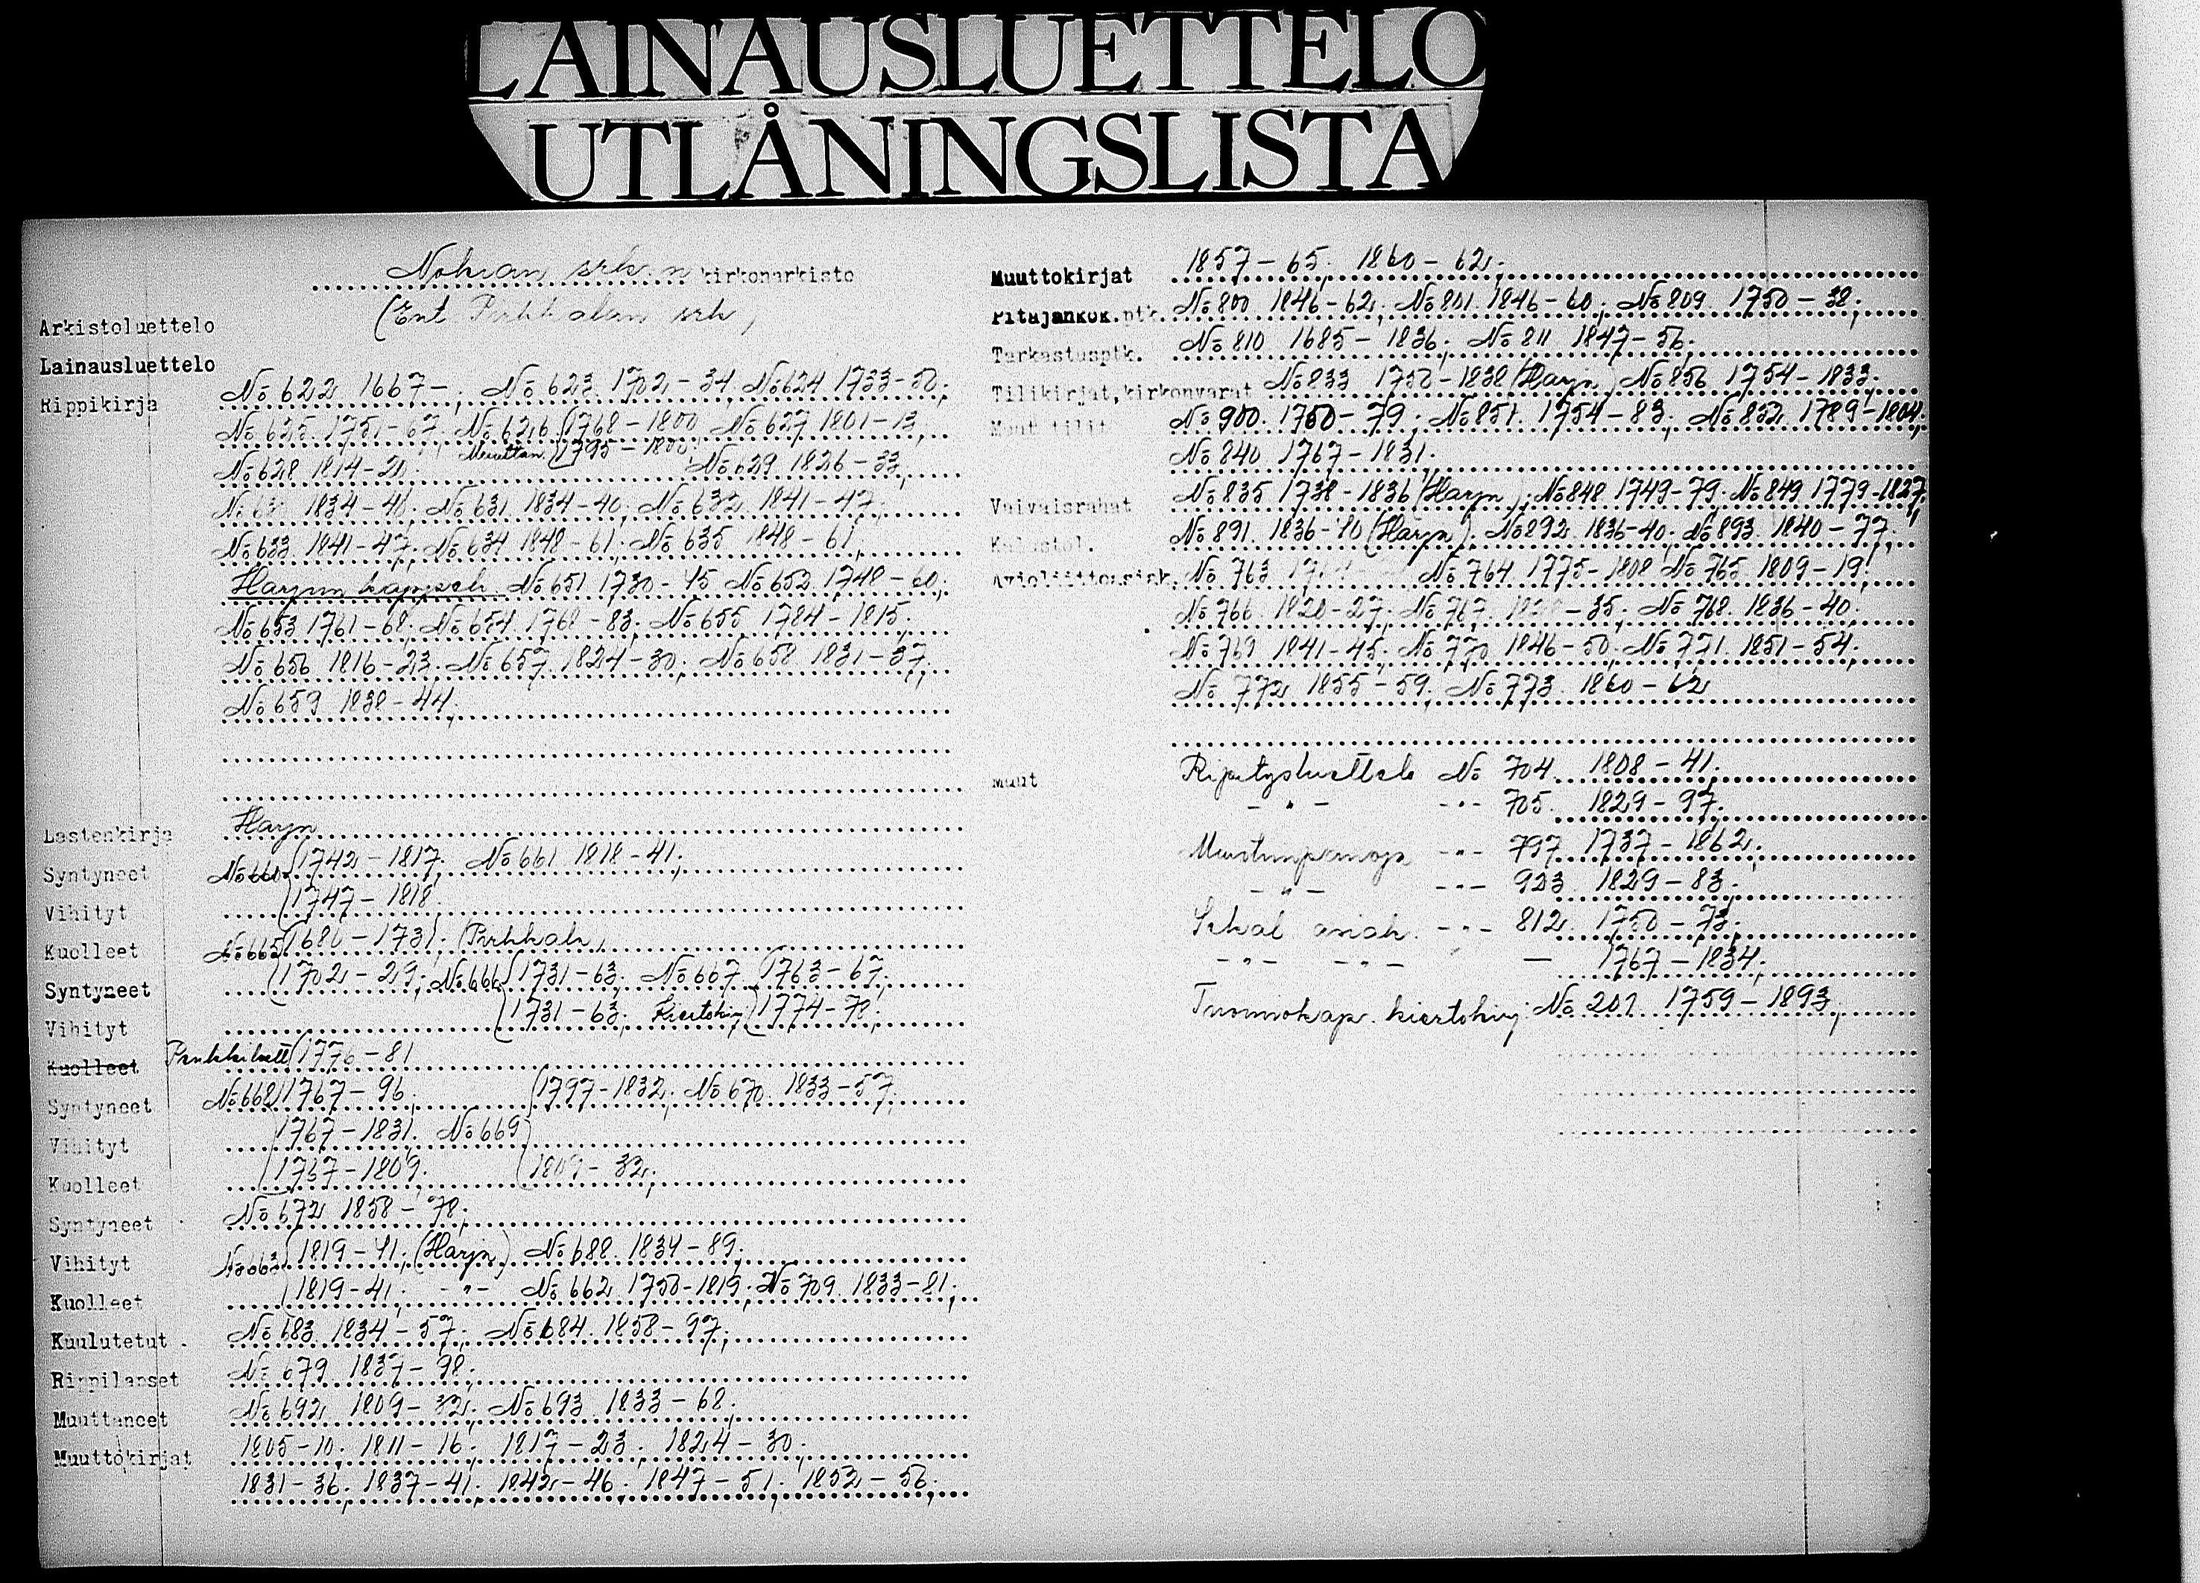 LAINAUSLUETTELO
UTLÅNINGSLISTA
Nokian srk:n kirkonarkisto
(Ent. Pirkkalan srk)
Arkistoluettelo
Lainausluettelo
Rippikirja No 622 1667-; No 623 1702-34, No 624 1733-50;
No 625 1751-67, No 626 (1768-1800 No 627 1801-13,
No 628 1814-20; Muuttan. (1795-1800; No 629 1826-33,
1834-40; No 631 1834-40; No 632 1841-47;
No 633 1841-47; No 634 1848-61; No 635 1848-61,
Harjun kappseli No 651 1730-45 No 652 1748-60;
No 653 1761-68; No 654 1768-83; No 655 1784-1815;
No 656 1816-23; No 657 1824-30; No 658 1831-37;
No 659 1838-44;
Lastenkirja Harjn
Syntyneet No 660 (1742-1817; No 661 1818-41;
Vihityt (1747-1818.
Kuolleet No 665 (1686-1731; (Pirkkala)
Syntyneet (1702-29; No 666 (1731-63; No 667 (1763-67;
Vihityt (1731-63; Kiertokirj (1774-78;
Kuolleet (1776-81
Syntyneet No 668 (1767-96; (1797-1832; No 670 1833-57;
Vihityt 1767-1831. No 669
Kuolleet (1767-1809; (1809-32;
Syntyneet No 672 1858-78;
Vihityt No 663 (1819-41; (Harjn) No 688 1834-89;
Kuolleet (1819-41; -"- No 662 1750-1819; No 709 1833-81;
Kuulutetut No 683 1834-57; No 684 1858-97;
Rippilapset No 679 1837-98;
Muuttaneet No 692 1809-32; No 693 1833-68;
Muuttokirjat 1805-10; 1811-16; 1817-23; 1824-30;
1831-36; 1837-41; 1842-46; 1847-51; 1852-56;
Muuttokirjat 1857-65; 1860-62;
Pitäjänkok.ptk. No 800 1846-62; No 801 1846-60; No 809 1750-38;
Tarkastusptk. No 810 1685-1836; No 811 1847-56;
Tilikirjat, kirkonvarat No 833 1750-1838 (Harjn) No 856 1754-1833;
Muut tilit No 900 1760-79; No 851 1754-83; No 852 1789-1804;
No 840 1767-1831.
Vaivaisrahat No 835 1738-1836 (Harjn); No 848 1749-79; No 849 1779-1827,
No 891 1836-40 (Harjn); No 892 1836-40; No 893 1840-77;
Avioliittoasiak. No 763 No 764 1775-1808 No 765 1809-19;
No 766 1820-27; No 767 -35; No 768 1836-40;
No 769 1841-45; No 770 1846-50; No 771 1851-54;
No 772 1855-59; No 773 1860-62
Muut Ripitysluettelo No 704 1808-41;
-"- -"- 705 1829-97;
Muistiinpanoja -"- 797 1737-1862;
-"- -"- 923 1829-83;
Sekal asiak. -"- 812 1750-73;
-"- -"- — 1767-1834;
Tuomiokap. kiertokirj. No 201 1759-1893;